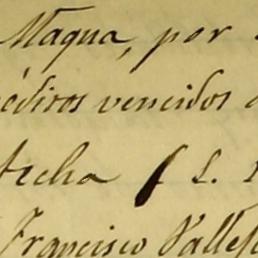 Maqua, por
réditos vencidos
fecha
Francisco Valles